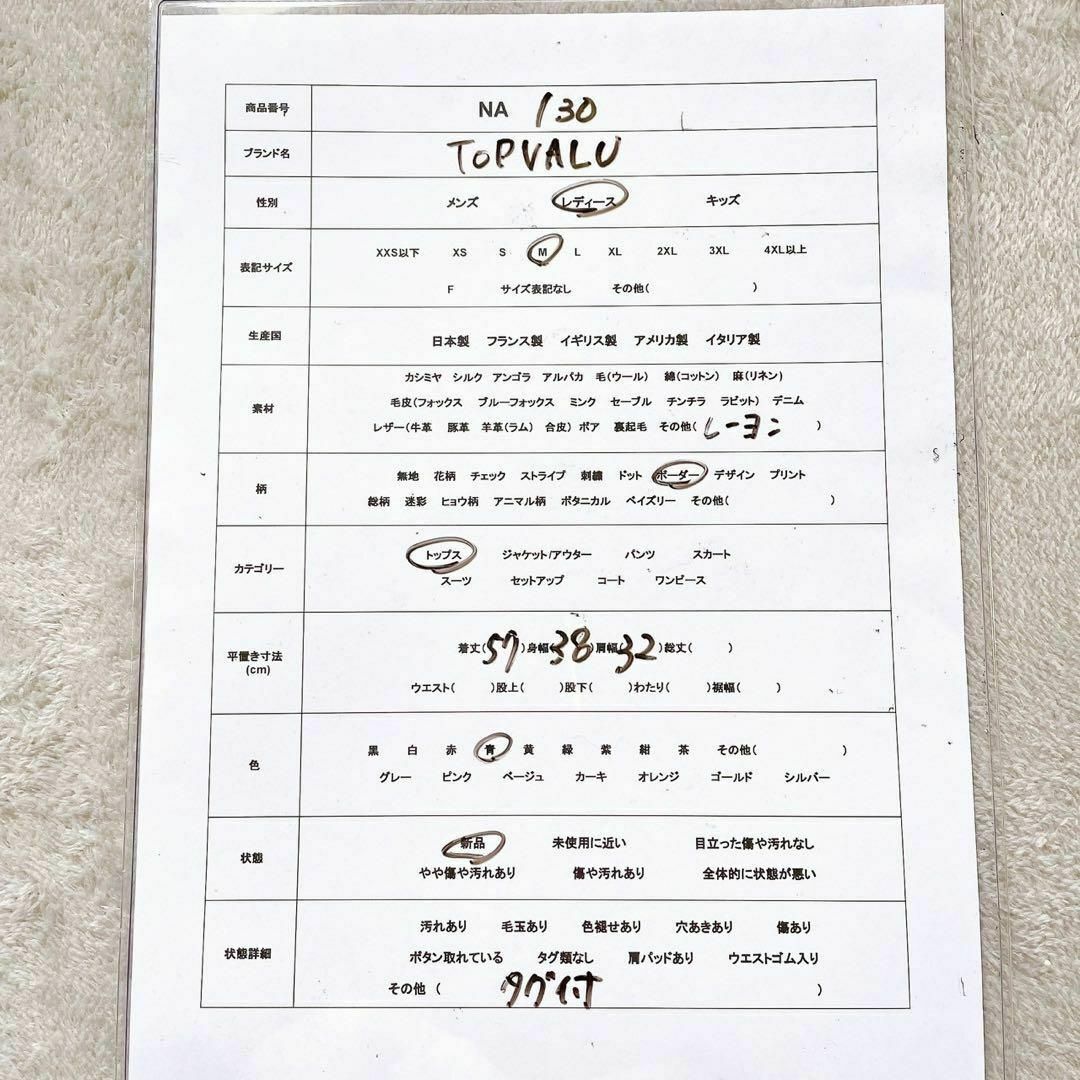 商品番号 NA 130
ブランド名 TOPVALU
性別 メンズ レディース キッズ
表記サイズ
XXS以下 XS S M L XL 2XL 3XL 4XL以上
F サイズ表記なし その他( )
生産国 日本製 フランス製 イギリス製 アメリカ製 イタリア製
素材
カシミヤ シルク アンゴラ アルパカ 毛(ウール) 綿(コットン) 麻(リネン)
毛皮(フォックス ブルーフォックス ミンク セーブル チンチラ ラビット) デニム
レザー(牛革 豚革 羊革(ラム) 合皮) ボア 裏起毛 その他(レーヨン)
柄
無地 花柄 チェック ストライプ 刺繍 ドット ボーダー デザイン プリント
総柄 迷彩 ヒョウ柄 アニマル柄 ボタニカル ペイズリー その他( )
カテゴリー
トップス ジャケット/アウター パンツ スカート
スーツ セットアップ コート ワンピース
平置き寸法
(cm)
着丈(57)身幅(38)肩幅(32)総丈( )
ウエスト( )股上( )股下( )わたり( )裾幅( )
色
黒 白 赤 青 黄 緑 紫 紺 茶 その他( )
グレー ピンク ベージュ カーキ オレンジ ゴールド シルバー
状態
新品 未使用に近い 目立った傷や汚れなし
やや傷や汚れあり 傷や汚れあり 全体的に状態が悪い
状態詳細
汚れあり 毛玉あり 色褪せあり 穴あきあり 傷あり
ボタン取れている タグ類なし 肩パッドあり ウエストゴム入り
その他 ( タグ付 )